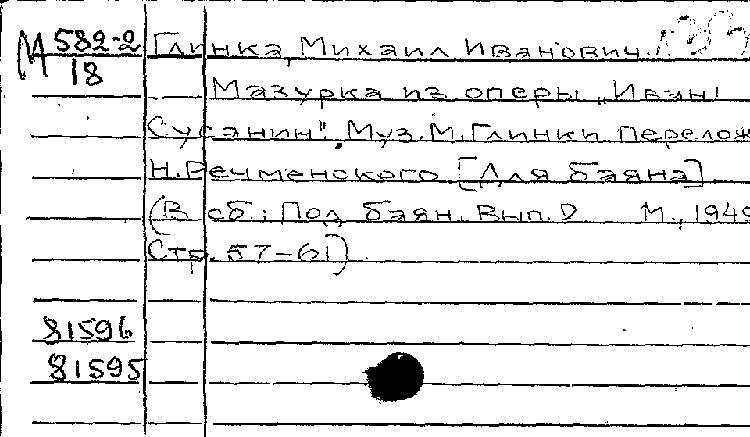 М 582-2
18
Глинка, Михаил Иванович.
Мазурка из оперы „Иван
Сусанин". Муз. М. Глинки. Перелож
Н. Речменского. [Для баяна]
(В сб: Под баян. Вып. 2 М., 1949
Стр. 57-61)
81596
81595